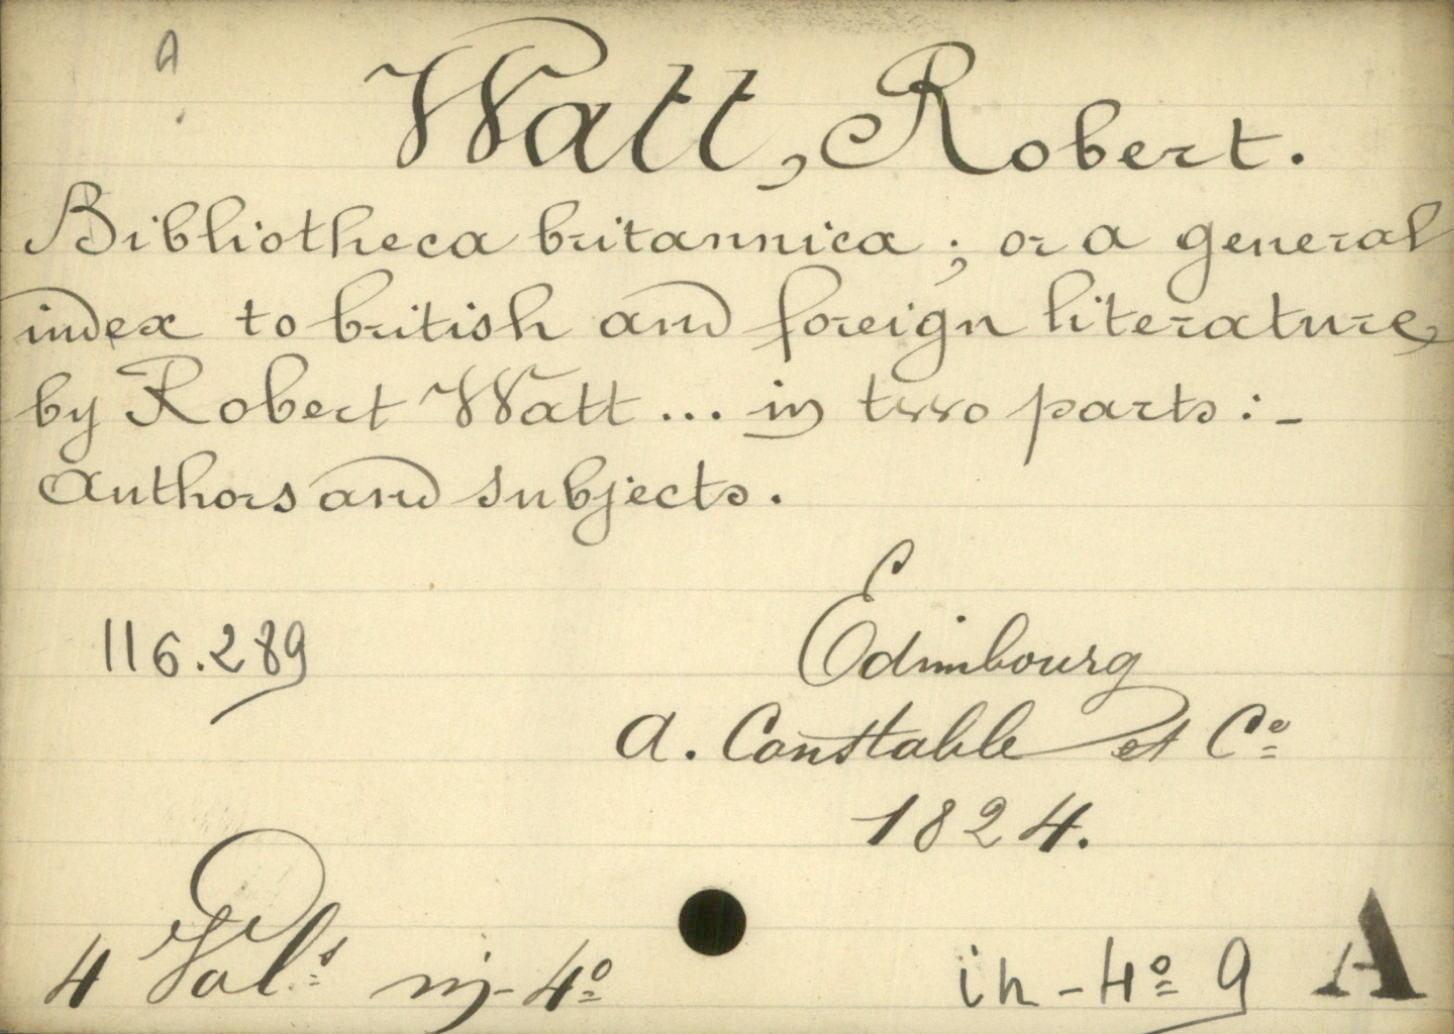 a
Watt, Robert.
Bibliotheca britannica ; or a general
index to british and foreign literature,
by Robert Watt ... in two parts : -
Authors and subjects.
116.289
Edimbourg
A. Constable et Cº
1824.
4 Vol.s in-4º
in-4º 9 A